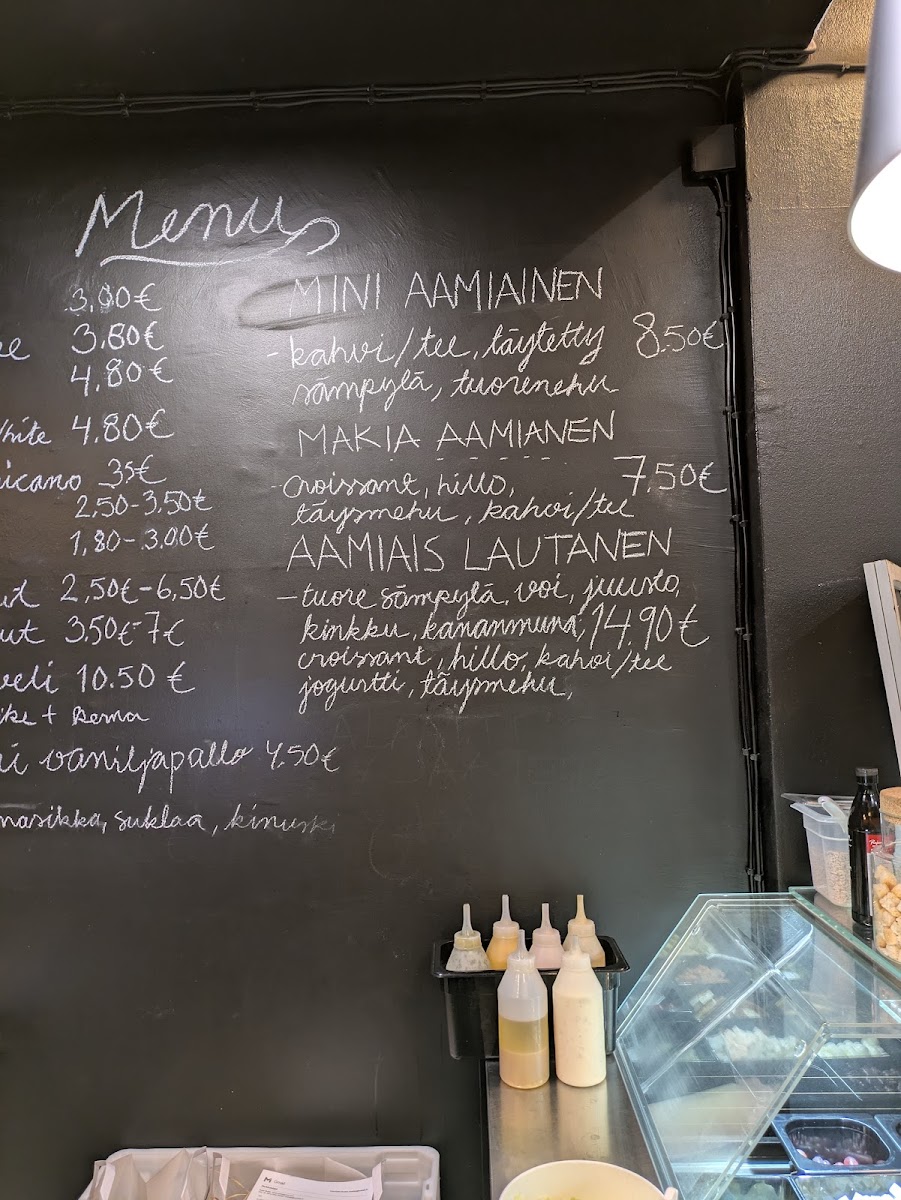 Menu
3,00€
3.80€
4,80€
4.80€
icano 35€
2,50-3,50€
1,80-3,00€
2,50€-6,50€
3,50€-7€
10.50€
+ kerma
vaniljapallo 4,50€
suklaa, kinuski
MINI AAMIAINEN
-kahvi/tee, täytetty 8.50€
sämpylä, tuoremehu
MAKIA AAMIANEN
-croissant, hillo, 7,50€
täysmehu, kahvi/tee
AAMIAIS LAUTANEN
-tuore sämpylä, voi, juusto,
kinkku, kananmuna, 14.90€
croissant, hillo, kahvi/tee
jogurtti, täysmehu,